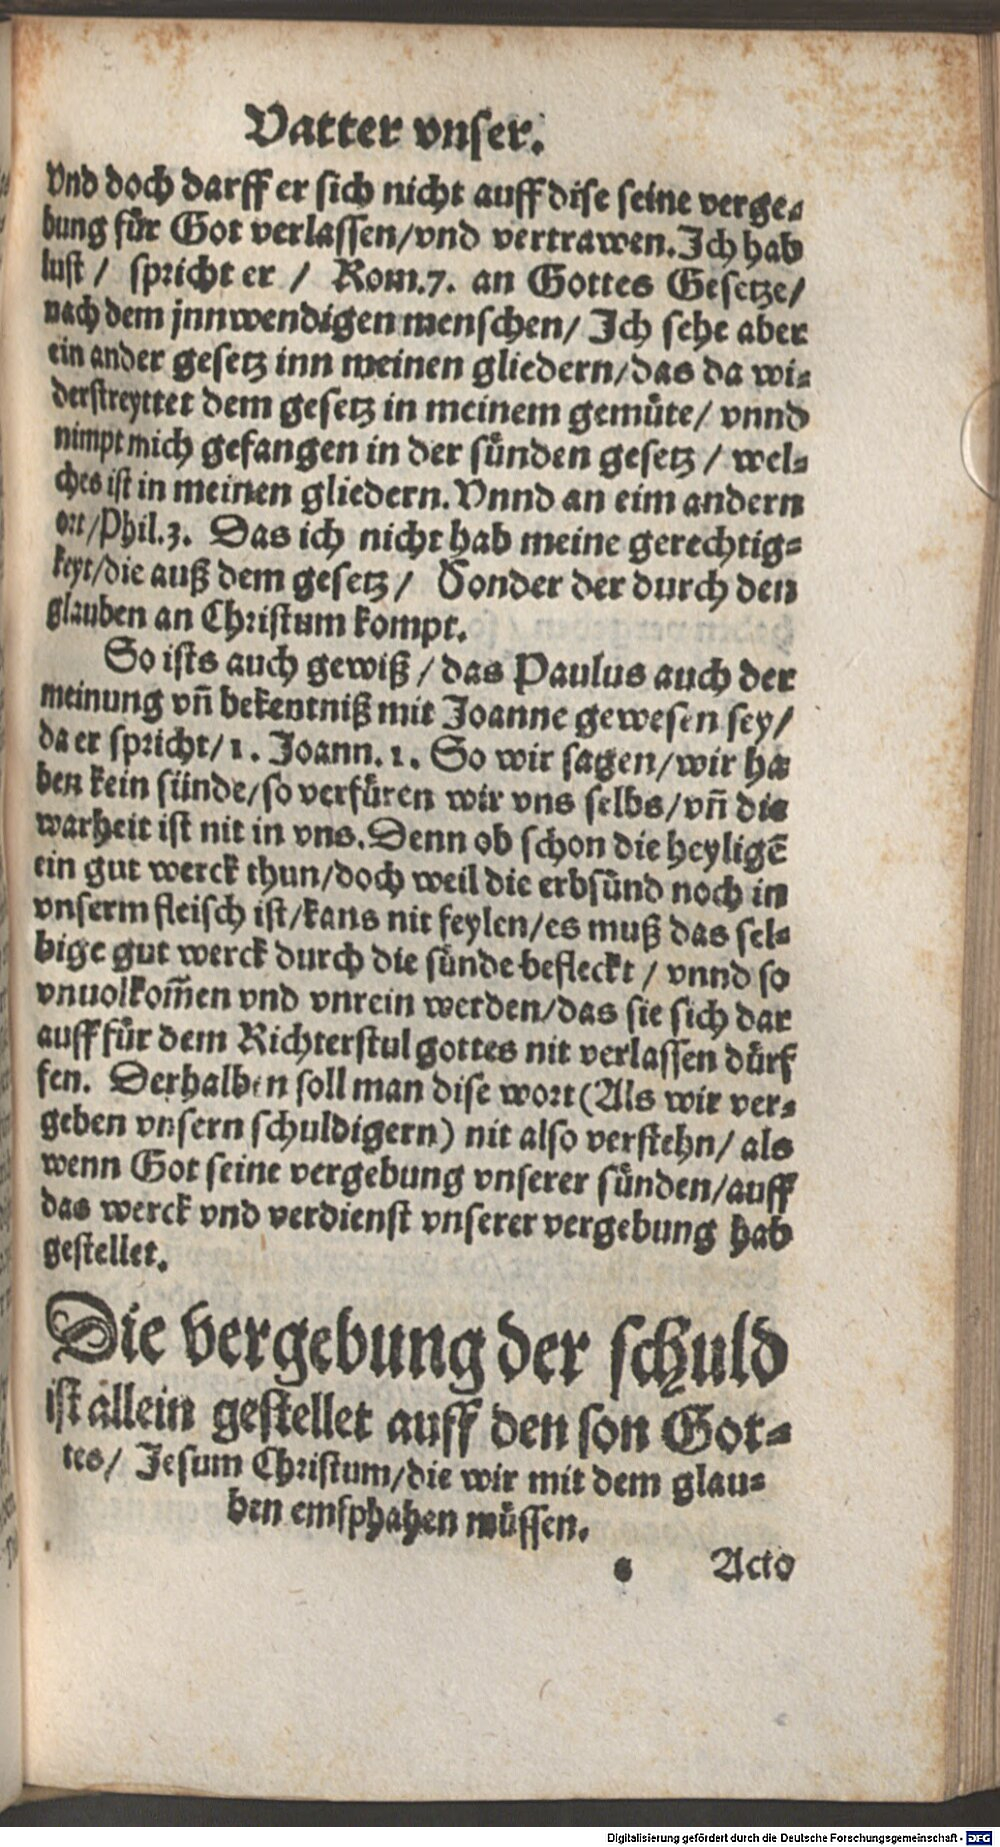 Vatter vnser.
Vnd doch darff er sich nicht auff dise seine verge-
bung für Got verlassen/vnd vertrawen. Ich hab
lust / spricht er / Rom.7. an Gottes Gesetze/
nach dem jnnwendigen menschen/ Ich sehe aber
ein ander gesetz inn meinen gliedern/das da wi-
derstreyttet dem gesetz in meinem gemüte/ vnnd
nimpt mich gefangen in der sünden gesetz / wel-
ches ist in meinen gliedern. Vnnd an eim andern
ort/Phil.3. Das ich nicht hab meine gerechtig-
keyt/die auß dem gesetz / Sonder der durch den
glauben an Christum kompt.
So ists auch gewiß / das Paulus auch der
meinung vn̄ bekentniß mit Joanne gewesen sey/
da er spricht/1. Joann.1. So wir sagen/wir ha
ben kein sünde/so verfüren wir vns selbs/vn̄ die
warheit ist nit in vns. Denn ob schon die heyligē
ein gut werck thun/doch weil die erbsünd noch in
vnserm fleisch ist/kans nit feylen/es muß das sel-
bige gut werck durch die sünde befleckt / vnnd so
vnuolkom̄en vnd vnrein werden/das sie sich dar
auff für dem Richterstul gottes nit verlassen dürf
fen. Derhalben soll man dise wort (Als wir ver-
geben vnsern schuldigern) nit also verstehn/ als
wenn Got seine vergebung vnserer sünden/auff
das werck vnd verdienst vnserer vergebung hab
gestellet.
Die vergebung der schuld
ist allein gestellet auff den son Got-
tes/ Jesum Christum/die wir mit dem glau-
ben emfphahen müssen.
s Acto
Digitalisierung gefördert durch die Deutsche Forschungsgemeinschaft - DFG